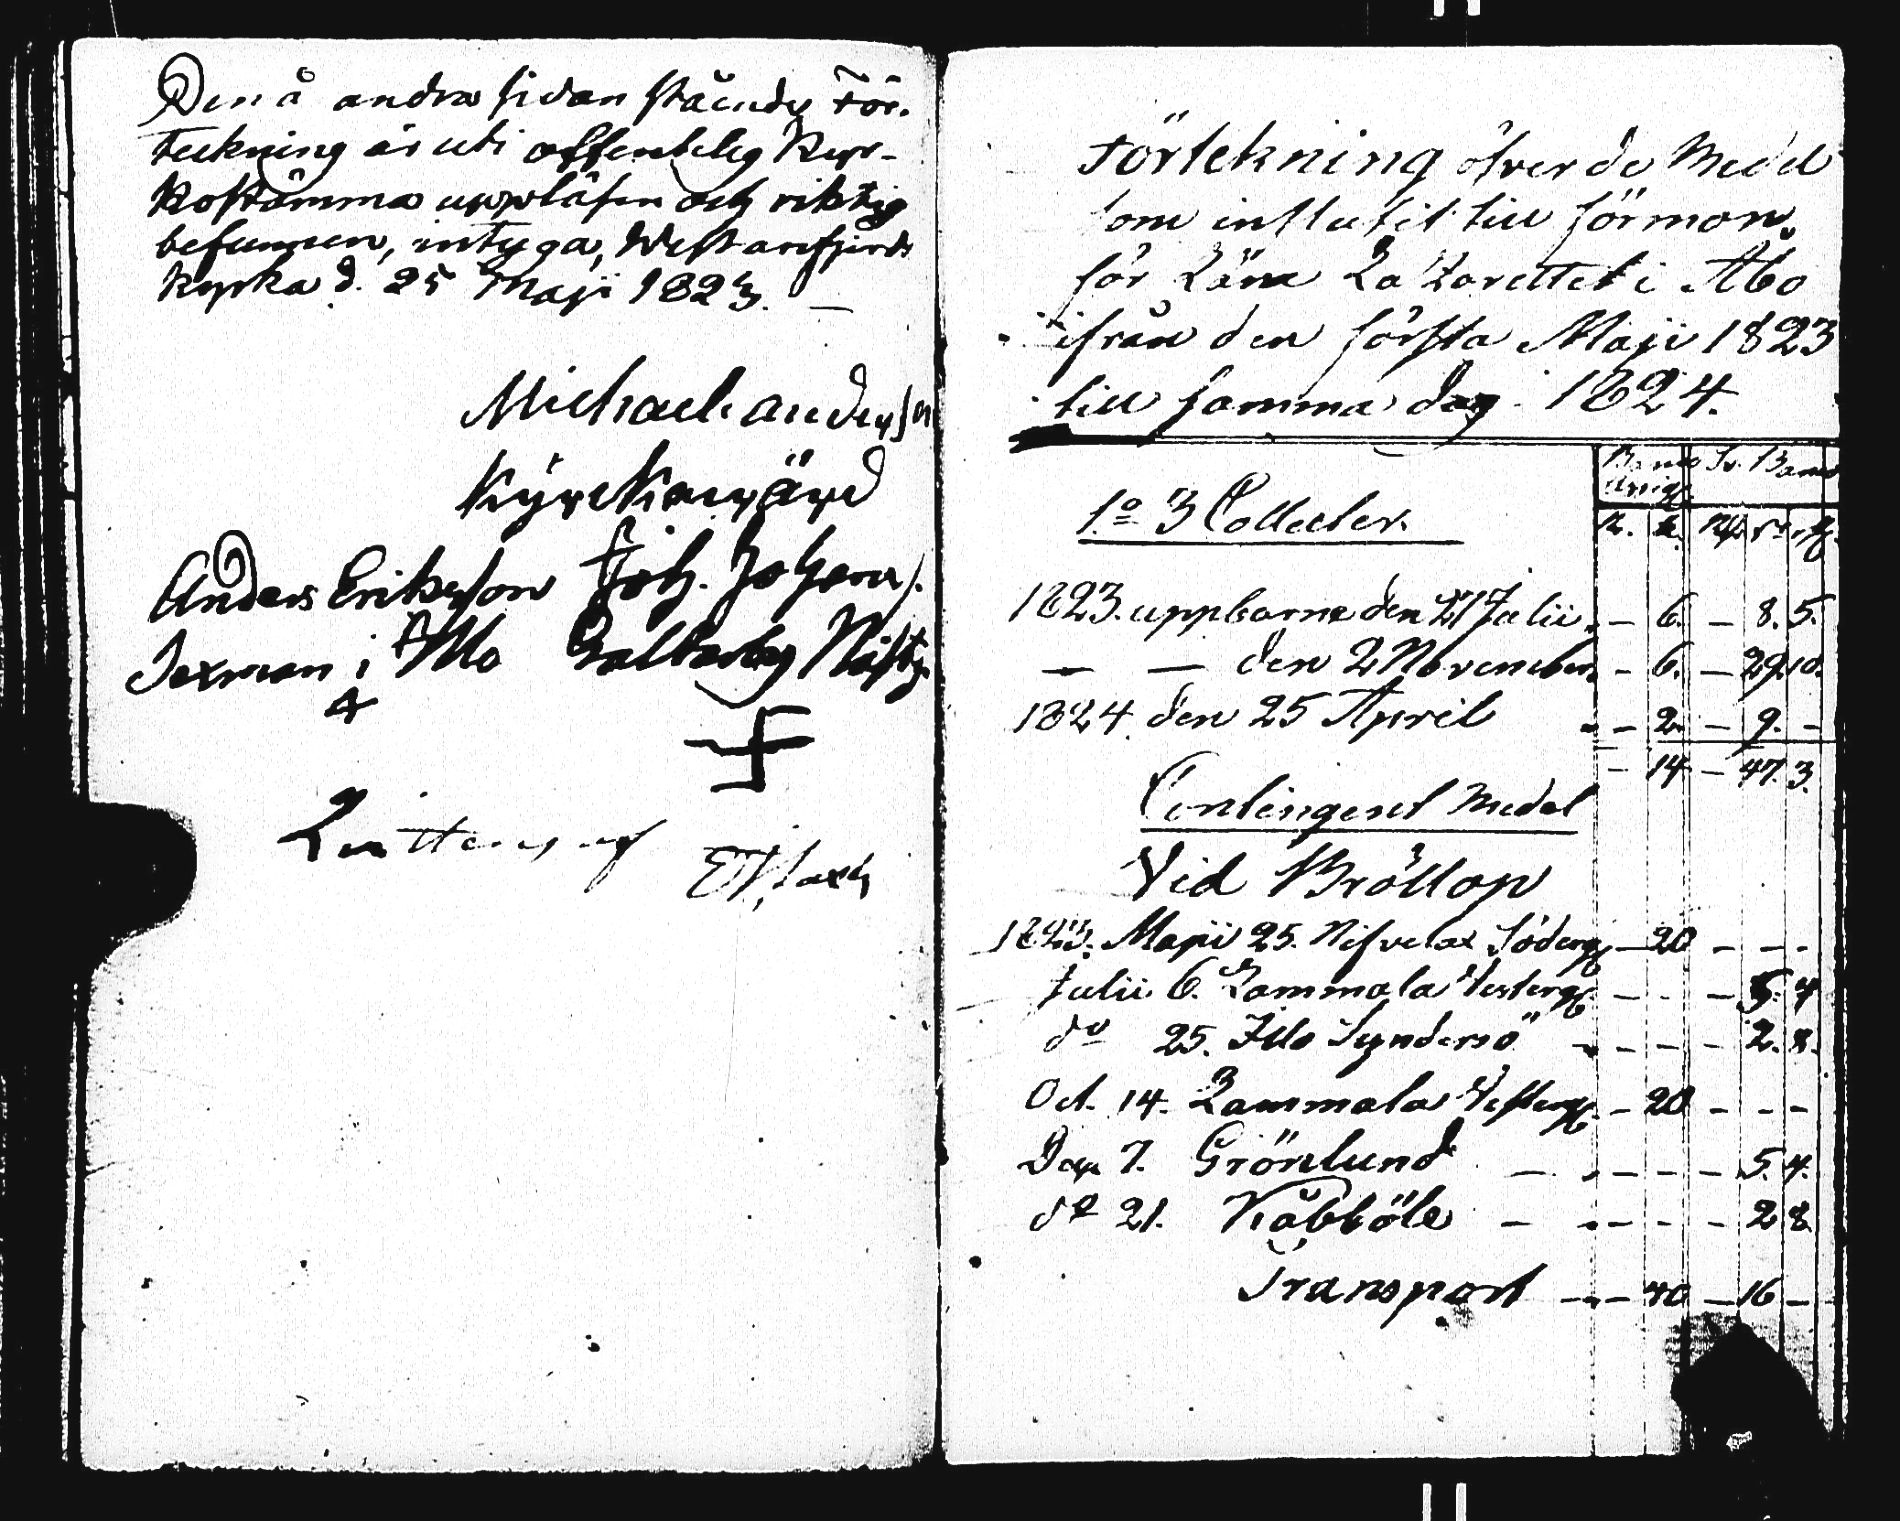 Den å andra sidan stående För-
teckning är uti offentelig Kyr-
kostämma uppläsen och riktig
befunnen, intyga, Westanfjerds
Kyrka d. 25 Maji 1823. —
Michael anders
Kyrckowärd
Anders Erikson Joh. Johans.
Sexman i Illo Galtarby
Förtekning öfver de Medel
som influtit till förmon
för Läns Lazarettet i Åbo
ifrån den första Maji 1823
till samma dag 1824.
Banco Sv. Banco
R. s. Rd. s. r.
1o 3 Collecter.
1823. uppborne den 21 Julii. – 6. – 8. 5.
— — den 2 November. – 6. – 29. 10.
1824. den 25 April – – 2. – 9. –
– 14 – 47. 3.
Contingent Medel
Vid Bröllop
1823. Maji 25. Nifvelax Söderg – 20 – – –
Julii 6. Lammala Vesterg – – – 5. 4
do 25. Illo Synderso – – – – 2. 8.
Oct. 14. Lammala Vesterg – 20 – – –
7. Grönlund — – – – – 5. 4.
do 21. Kåbböle – – – – – 2 8
Transport – – 40 – 16 –